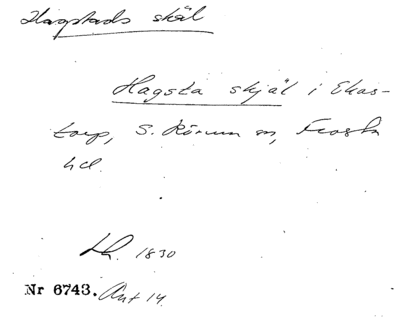 Hagstads skäl
Hagsta skjäl i Ekas-
torp, S. Rörum sn, Frosta
hd.
Lh. 1830
Nr 6743. Ant 14.